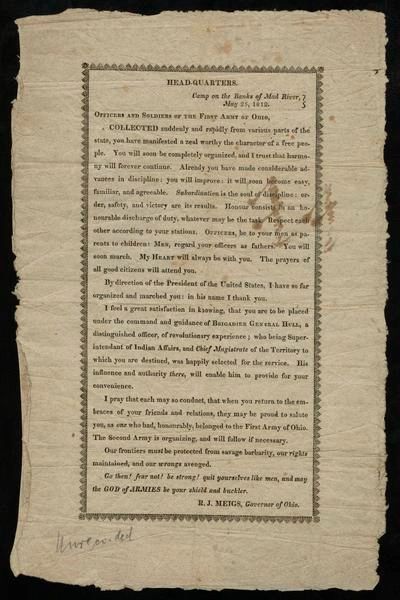 HEAD-QUARTERS.
Camp on the Banks of Mad River,
May 25, 1812.
OFFICERS AND SOLDIERS OF THE FIRST ARMY OF OHIO,
COLLECTED suddenly and rapidly from various parts of the
state, you have manifested a zeal worthy the character of a free peo-
ple. You will soon be completely organized, and I trust that harmo-
ny will forever continue. Already you have made considerable ad-
vances in discipline: you will improve: it will soon become easy,
familiar, and agreeable. Subordination is the soul of discipline: or-
der, safety, and victory are its results. Honour consists in an ho-
nourable discharge of duty, whatever may be the task. Respect each
other according to your stations. OFFICERS, be to your men as pa-
rents to children: MEN, regard your officers as fathers. You will
soon march. My HEART will always be with you. The prayers of
all good citizens will attend you.
By direction of the President of the United States, I have so far
organized and marched you: in his name I thank you.
I feel a great satisfaction in knowing, that you are to be placed
under the command and guidance of BRIGADIER GENERAL HULL, a
distinguished officer, of revolutionary experience; who being Super-
intendant of Indian Affairs, and Chief Magistrate of the Territory to
which you are destined, was happily selected for the service. His
influence and authority there, will enable him to provide for your
convenience.
I pray that each may so conduct, that when you return to the em-
braces of your friends and relations, they may be proud to salute
you, as one who had, honourably, belonged to the First Army of Ohio.
The Second Army is organizing, and will follow if necessary.
Our frontiers must be protected from savage barbarity, our rights
maintained, and our wrongs avenged.
Go then! fear not! be strong! quit yourselves like men, and may
the GOD of ARMIES be your shield and buckler.
R. J. MEIGS, Governor of Ohio.
Unrecorded